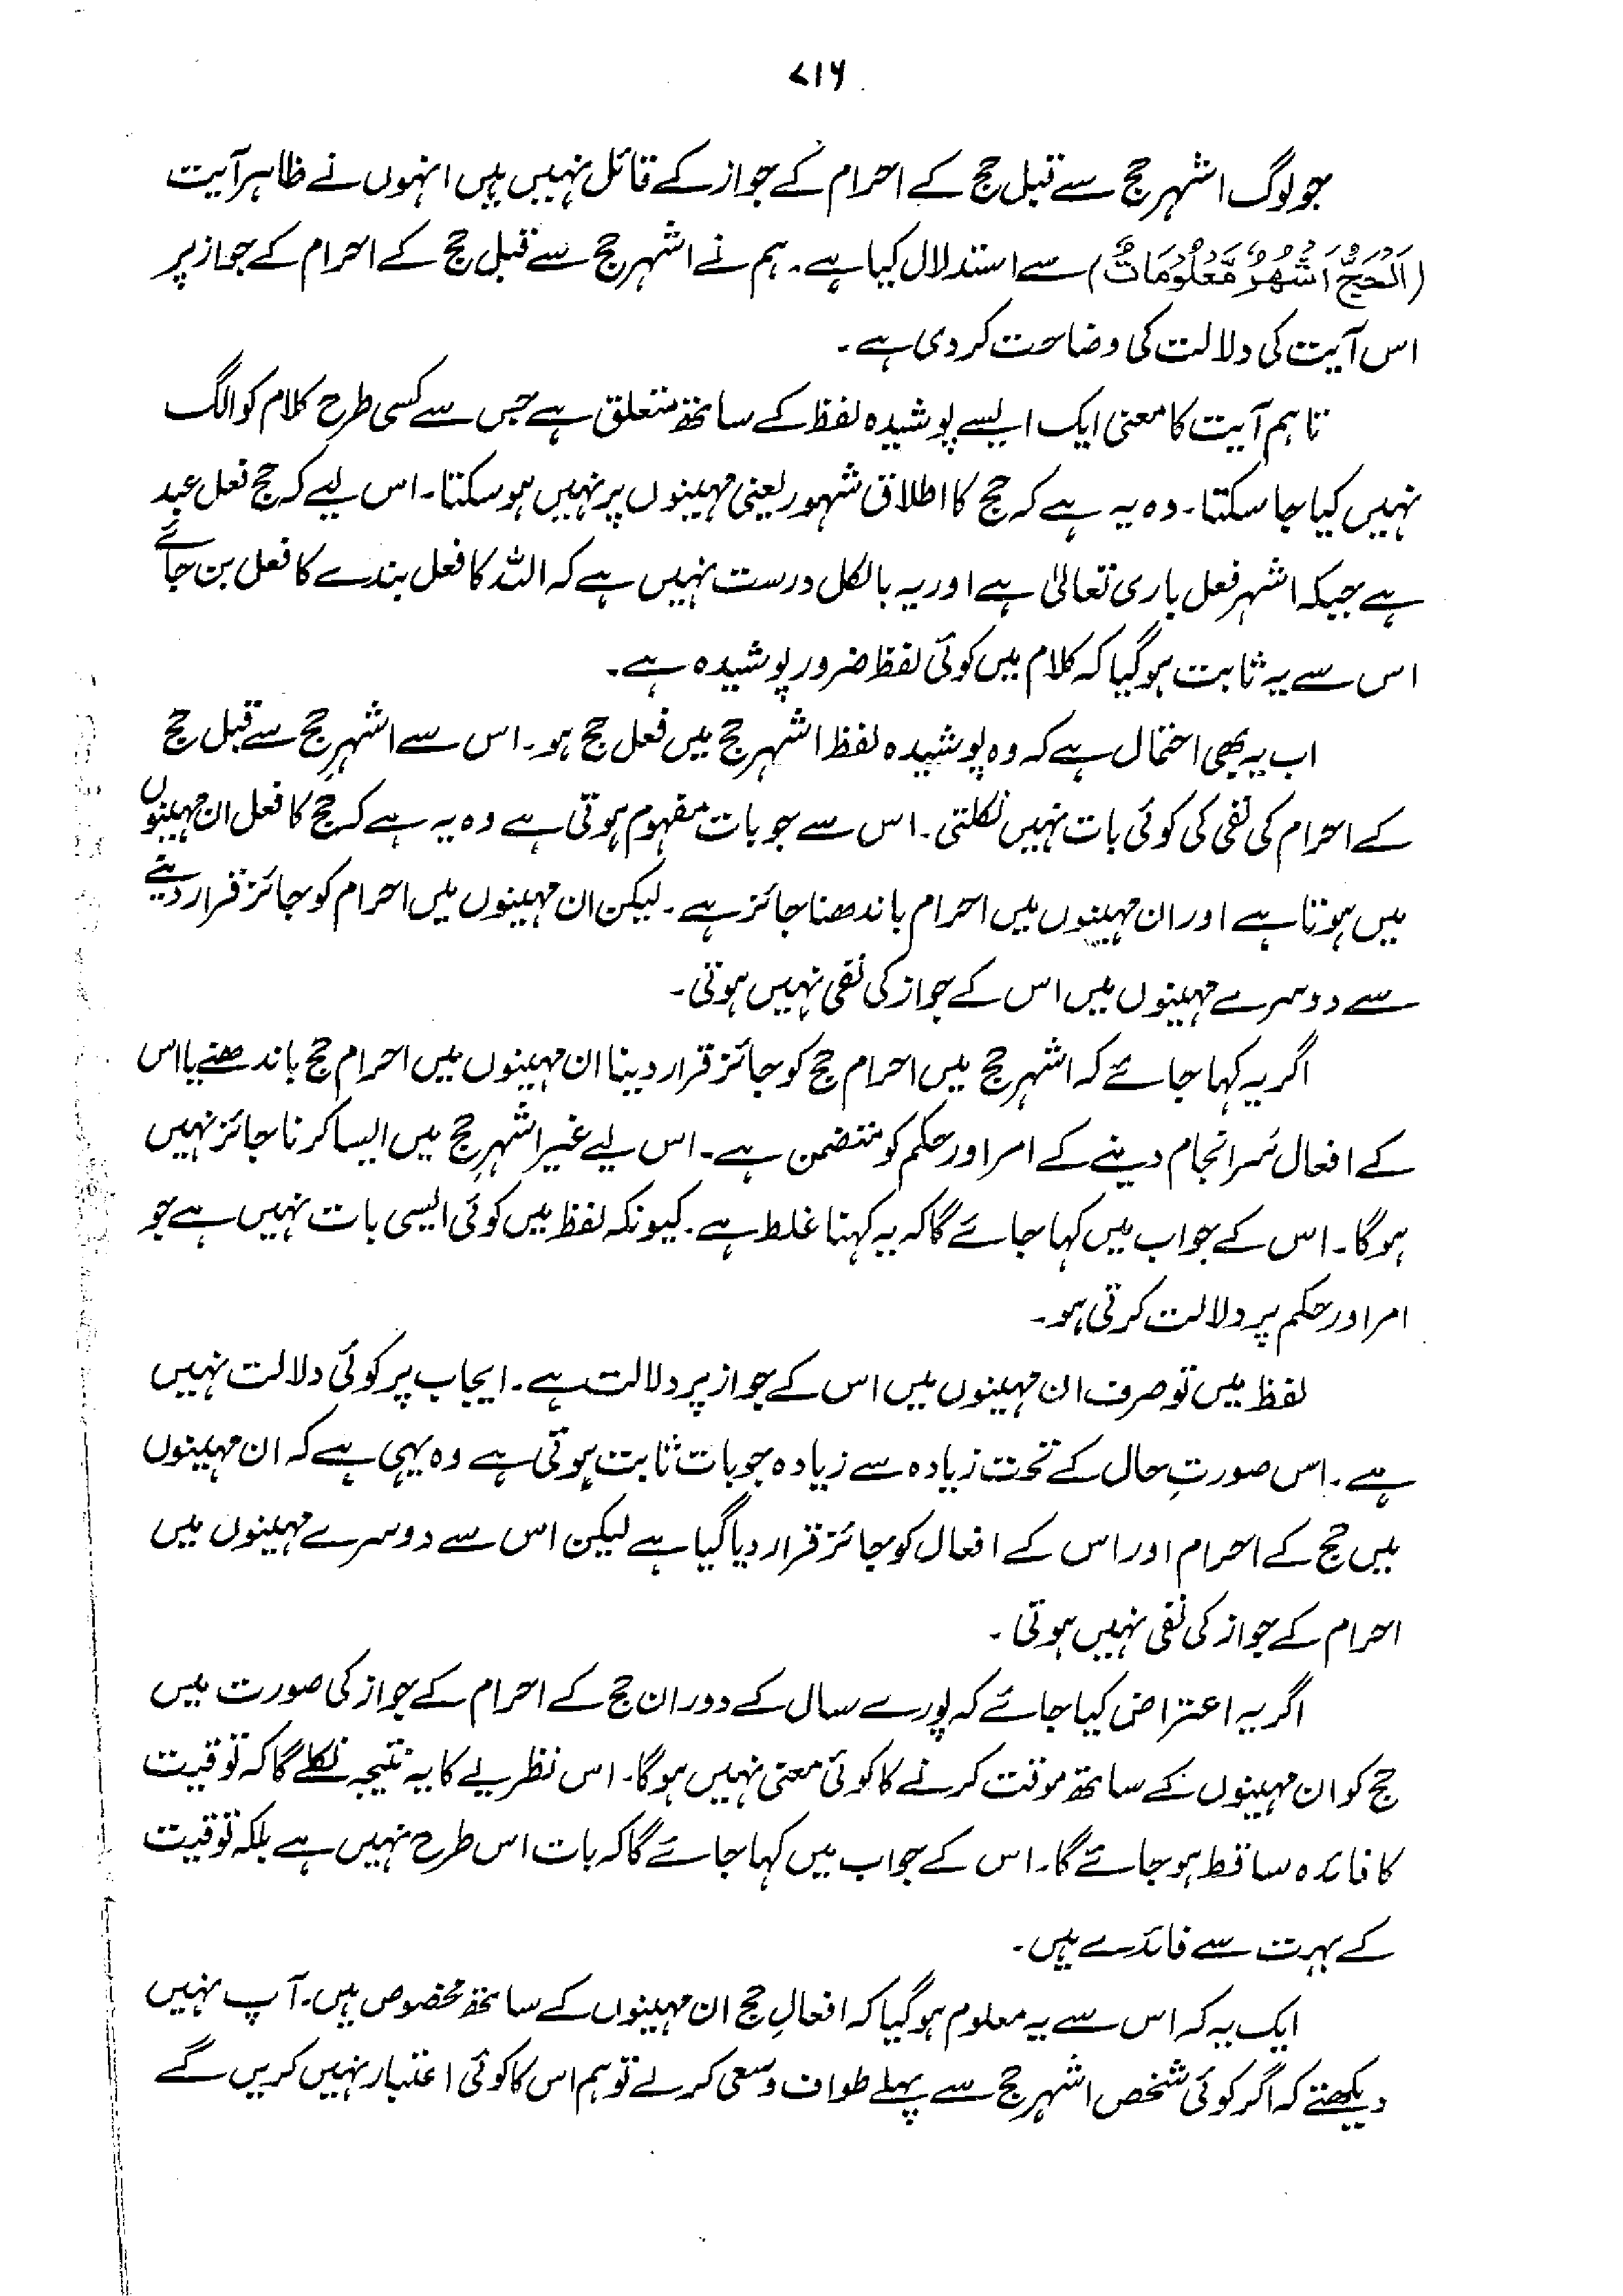 ۷۱۶
جو لوگ اشہر حج سے قبل حج کے احرام کے جواز کے قائل نہیں ہیں انہوں نے ظاہر آیت
(اَلْحَجُّ اَشْهُرٌ مَّعْلُوْمَاتٌ) سے استدلال کیا ہے۔ ہم نے اشہر حج سے قبل حج کے احرام کے جواز پر
اس آیت کی دلالت کی وضاحت کر دی ہے۔
تاہم آیت کا معنی ایک ایسے پوشیدہ لفظ کے ساتھ متعلق ہے جس سے کسی طرح کلام کو الگ
نہیں کیا جا سکتا۔ وہ یہ ہے کہ حج کا اطلاق شہور یعنی مہینوں پر نہیں ہو سکتا۔ اس لیے کہ حج فعل عبد
ہے جبکہ اشہر فعل باری تعالیٰ ہے اور یہ بالکل درست نہیں ہے کہ اللہ کا فعل بندے کا فعل بن جائے
اس سے یہ ثابت ہو گیا کہ کلام میں کوئی لفظ ضرور پوشیدہ ہے۔
اب یہ بھی احتمال ہے کہ وہ پوشیدہ لفظ اشہر حج میں فعل حج ہو۔ اس سے اشہرِ حج سے قبل حج
کے احرام کی نفی کی کوئی بات نہیں نکلتی۔ اس سے جو بات مفہوم ہوتی ہے وہ یہ ہے کہ حج کا فعل ان مہینوں
میں ہوتا ہے اور ان مہینوں میں احرام باندھنا جائز ہے۔ لیکن ان مہینوں میں احرام کو جائز قرار دیئے
سے دوسرے مہینوں میں اس کے جواز کی نفی نہیں ہوتی۔
اگر یہ کہا جائے کہ اشہر حج میں احرام حج کو جائز قرار دینا ان مہینوں میں احرام حج باندھنے یا اس
کے افعال سرانجام دینے کے امر اور حکم کو متضمن ہے۔ اس لیے غیر اشہرِ حج میں ایسا کرنا جائز نہیں
ہوگا۔ اس کے جواب میں کہا جائے گا کہ یہ کہنا غلط ہے۔ کیونکہ لفظ میں کوئی ایسی بات نہیں ہے جو
امر اور حکم پر دلالت کرتی ہو۔
لفظ میں تو صرف ان مہینوں میں اس کے جواز پر دلالت ہے۔ ایجاب پر کوئی دلالت نہیں
ہے۔ اس صورتِ حال کے تحت زیادہ سے زیادہ جو بات ثابت ہوتی ہے وہ یہی ہے کہ ان مہینوں
میں حج کے احرام اور اس کے افعال کو جائز قرار دیا گیا ہے لیکن اس سے دوسرے مہینوں میں
احرام کے جواز کی نفی نہیں ہوتی۔
اگر یہ اعتراض کیا جائے کہ پورے سال کے دوران حج کے احرام کے جواز کی صورت میں
حج کو ان مہینوں کے ساتھ موقت کرنے کا کوئی معنی نہیں ہوگا۔ اس نظریے کا یہ نتیجہ نکلے گا کہ توقیت
کا فائدہ ساقط ہو جائے گا۔ اس کے جواب میں کہا جائے گا کہ بات اس طرح نہیں ہے بلکہ توقیت
کے بہت سے فائدے ہیں۔
ایک یہ کہ اس سے یہ معلوم ہو گیا کہ افعالِ حج ان مہینوں کے ساتھ مخصوص ہیں۔ آپ نہیں
دیکھتے کہ اگر کوئی شخص اشہر حج سے پہلے طواف وسعی کر لے تو ہم اس کا کوئی اعتبار نہیں کریں گے